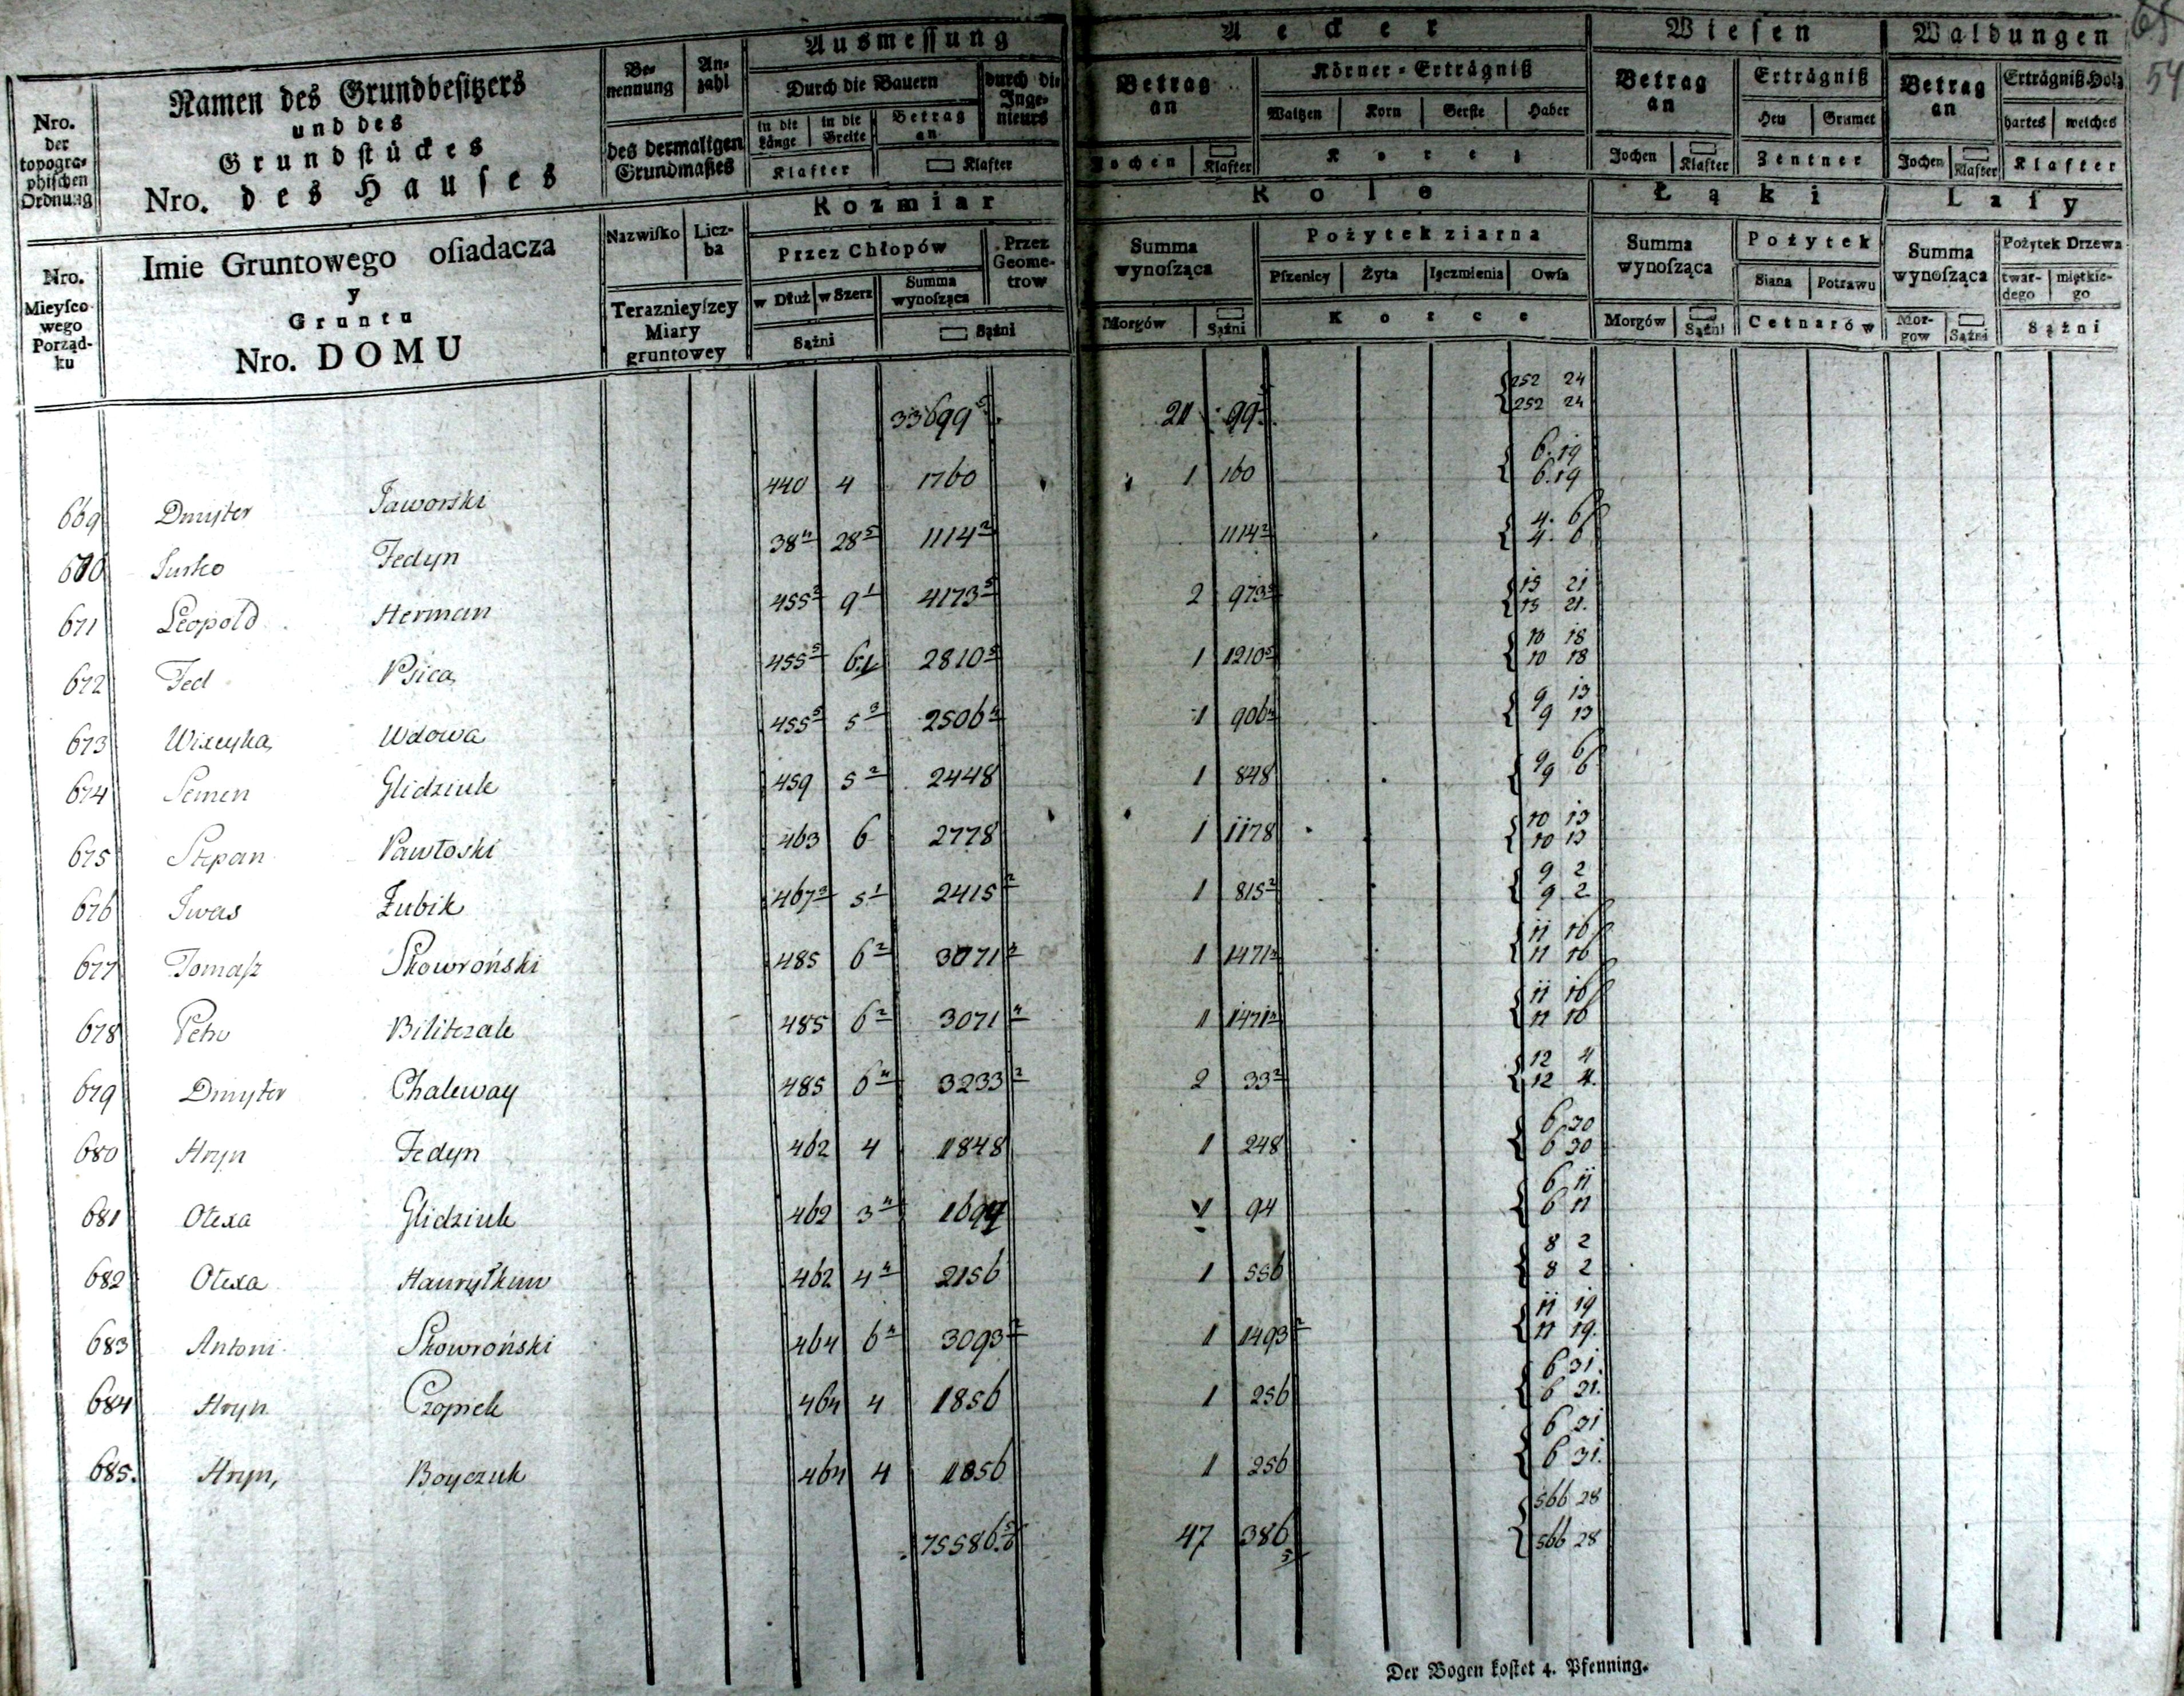 65
54
Nro. der topogra- phischen Ordnung
Namen des Grundbesitzers
und des
Grundstückes
Nro. des Hauses
Be- nennung | An- zahl
des dermaligen Grundmaßes
Ausmessung
Durch die Bauern | durch die Inge- nieurs
in die Länge | in die Breite | Betrag an
Klafter | □ Klafter
Aecker
Betrag an | Körner-Erträgniß
Waitzen | Korn | Gerste | Haber
Jochen | □ Klafter | Korez
Wiesen
Betrag an | Erträgniß
Heu | Grumet
Jochen | □ Klafter | Zentner
Waldungen
Betrag an | Erträgniß Holz
hartes | weiches
Jochen | □ Klafter | Klafter
Nro. Mieysco- wego Porząd- ku
Imie Gruntowego osiadacza
y
Gruntu
Nro. DOMU
Nazwisko | Licz- ba
Teraznieyszey Miary gruntowey
Rozmiar
Przez Chłopów | Przez Geome- trow
w Dłuż | w Szerz | Summa wynosząca
Sążni | □ Sążni
Role
Summa wynosząca | Pożytek ziarna
Pszenicy | Żyta | Ięczmienia | Owsa
Morgów | □ Sążni | Korce
Łąki
Summa wynosząca | Pożytek
Siana | Potrawu
Morgów | □ Sążni | Cetnarów
Lasy
Summa wynosząca | Pożytek Drzewa
twar- dego | miętkie- go
Mor- gow | □ Sążni | Sążni
33699 5 | 21 | 99 5 | 252 24 | 252 24
669 Dmyter Jaworski 440 4 1760 1 160 6.19 6.19
670 Jurko Fedyn 38 4 28 5 1114 2 1114 2 4. 6 4. 6
671 Leopold Herman 455 2 9 1 4173 5 2 973 5 15 21 15 21.
672 Fed Psica 455 5 6.1 2810 5 1 1210 5 10 18 10 18
673 Wdowa 455 5 5 3 2506 4 1 906 4 9 13 9 13
674 Semen Glidziuk 459 5 2 2448 1 848 9 6 9 6
675 Stepan Pawłoski 463 6 2778 1 1178 10 13 10 13
676 Iwas Zubik 467 3 5 1 2415 2 1 815 2 9 2 9 2
677 Tomasz Skowroński 485 6 2 3071 4 1 1471 4 11 16 11 16
678 Petro Biliczak 485 6 2 3071 4 1 1471 4 11 16 11 16
679 Dmyter Chaleway 485 6 4 3233 2 2 33 2 12 4 12 4.
680 Hryn Fedyn 462 4 1848 1 248 6 30 6 30
681 Olexa Glidziuk 462 3 4 1694 1 94 6 11 6 11
682 Olexa 462 4 4 2156 1 556 8 2 8 2
683 Antoni Skowroński 464 6 4 3093 2 1 1493 2 11 19 11 19.
684 Hryn Czopick 464 4 1856 1 256 6 31. 6 31.
685. Hryn, Boyczuk 464 4 1856 1 256 6 31 6 31.
75586. 5 47 386 5 566 28 566 28
Der Bogen kostet 4. Pfenning.